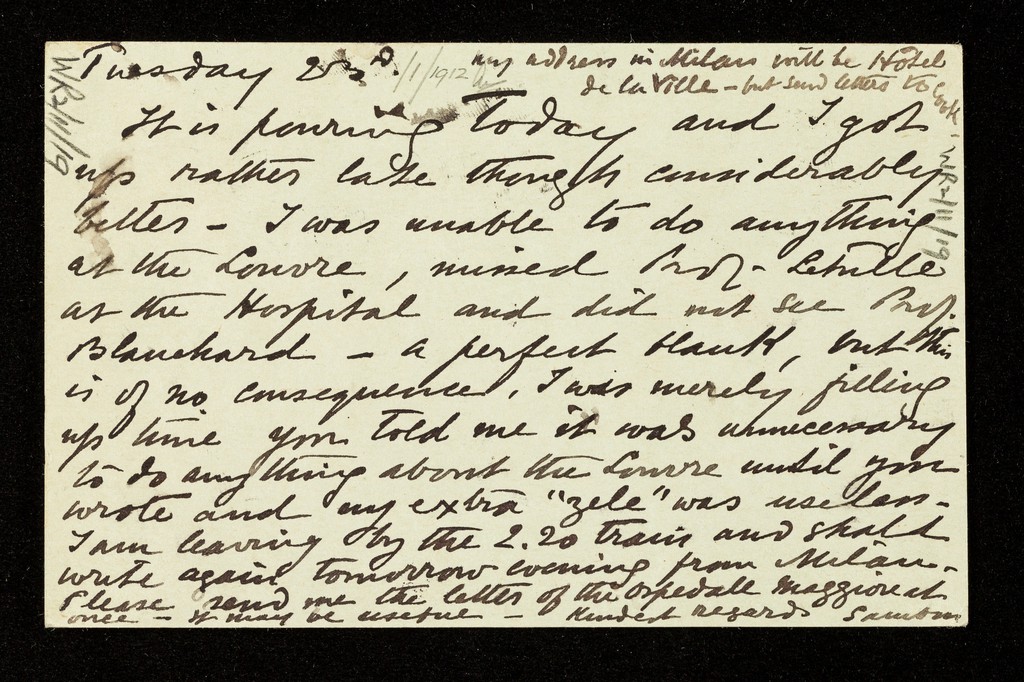 Tuesday 23rd. /1/1912 my address in Milan will be Hotel
de la Ville - but send letters to Cook.
It is pouring Today and I got
up rather late though considerably
better - I was unable to do anything
at the Louvre, missed Prof. Letulle
at the Hospital and did not see Prof.
Blanchard - a perfect blank, but this
is of no consequence, I was merely filling
up time you told me it was unnecessary
to do anything about the Louvre until you
wrote and my extra "zele" was useless -
I am leaving by the 2.20 train and shall
write again tomorrow evening from Milan -
Please send me the letter of the Ospedale Maggiore at
once - it may be useful - Kindest regards Sambon